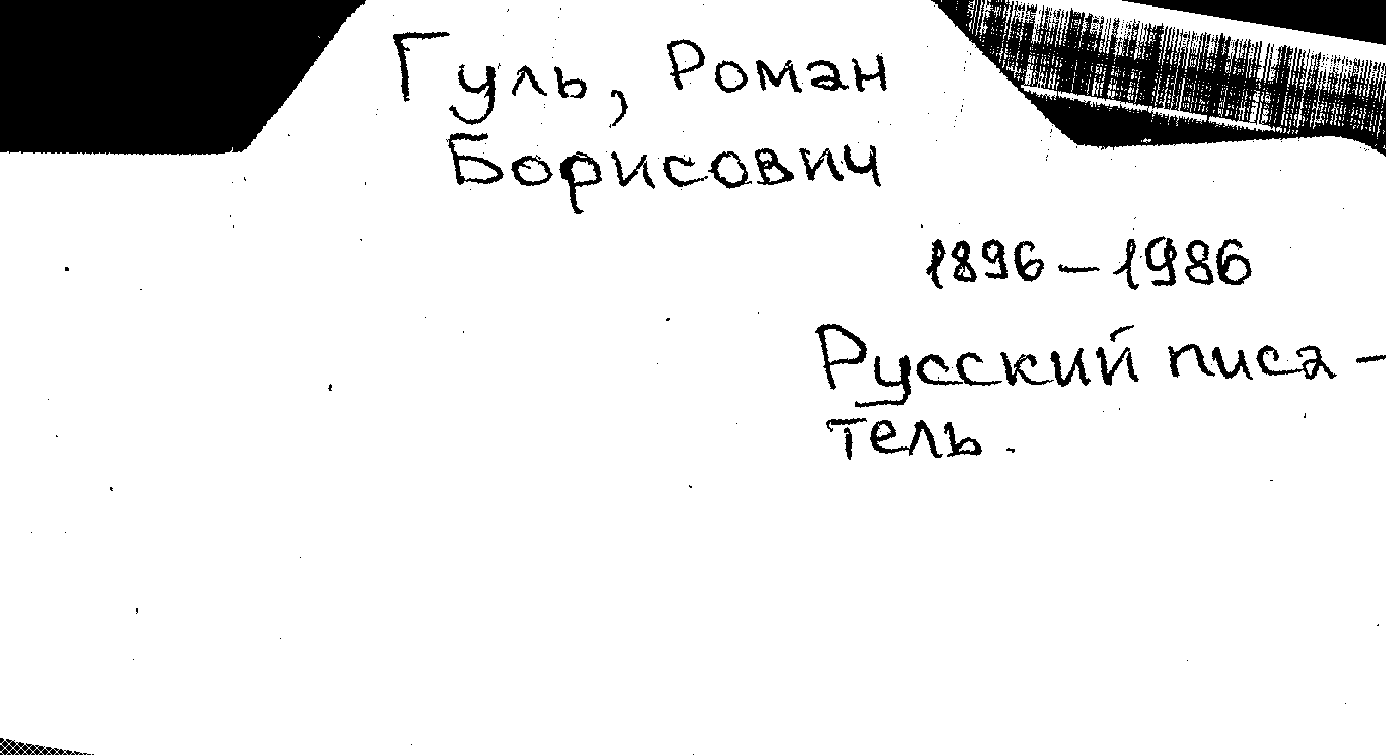 Гуль, Роман
Борисович
1896 – 1986
Русский писа-
тель.